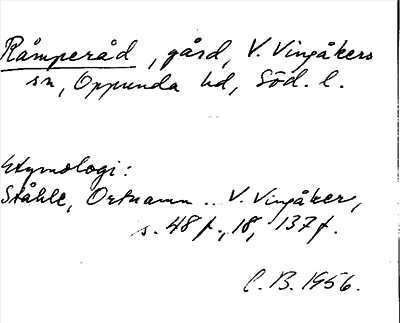 Råmperåd, gård, V. Vingåkers
sn, Oppunda hd, Söd. l.
Etymologi:
Ståhle, Ortnamn .. V. Vingåker,
s. 48 f., 18, 137 f.
C. B. 1956.